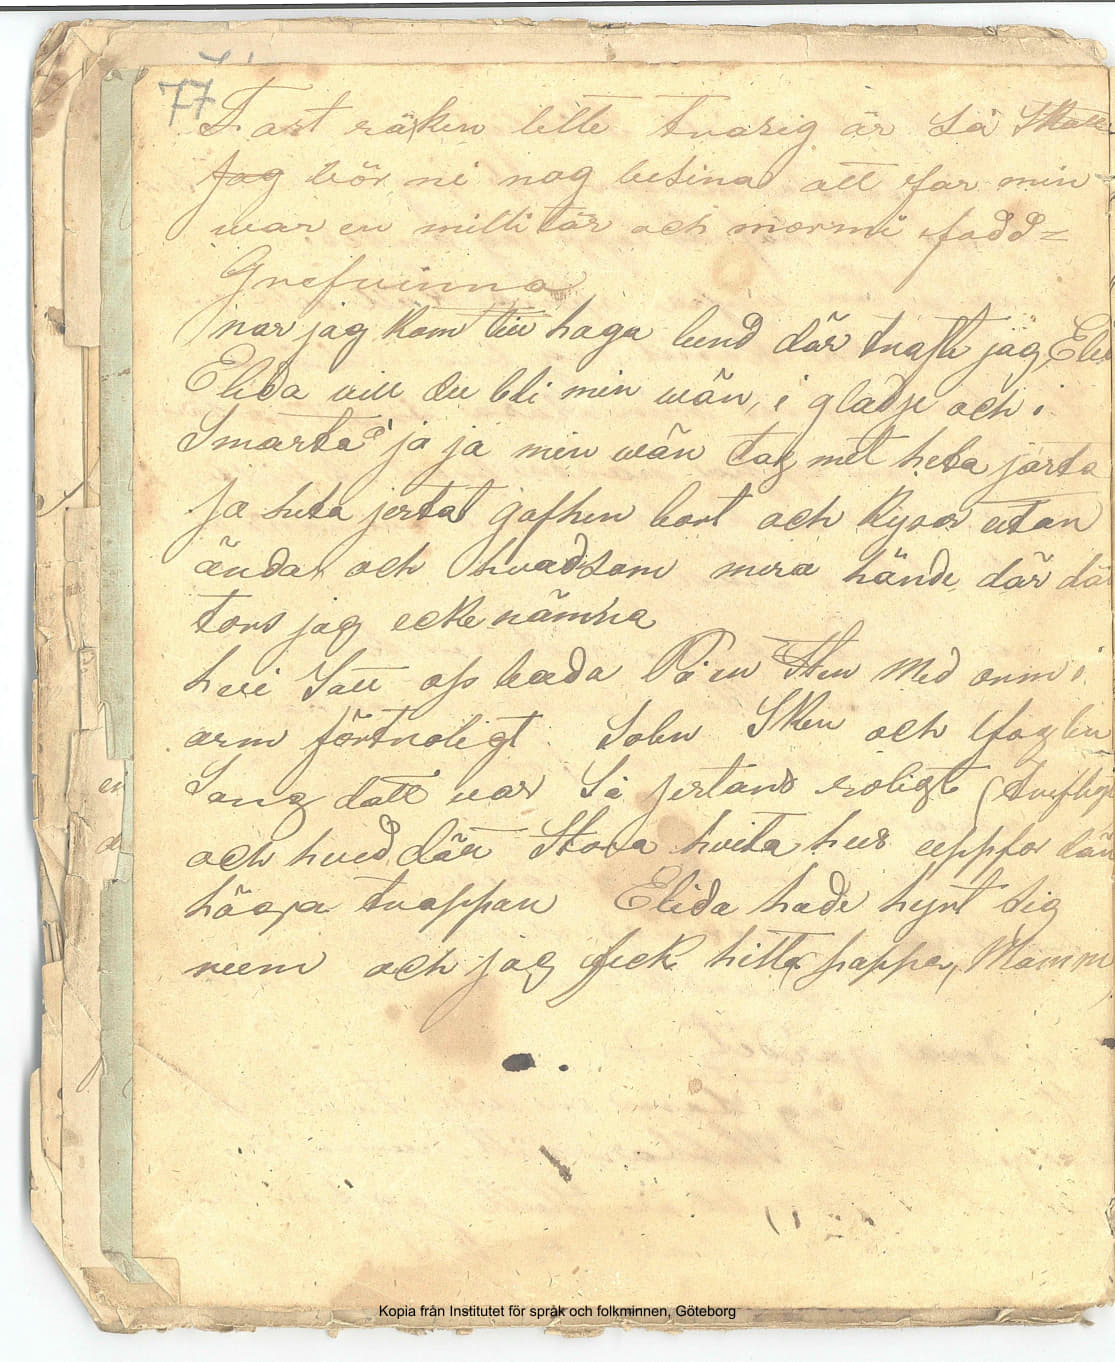 77
Fast räken lite tvasig är Så Skall
Jag bör ni nog besina att far min
war en millitär och mormi född
Grefvinna
nar jag kom till haga lund där traftt jag Elid
Elida vill du bli min wän, i gladje och i
Smarta ja ja min wän tag mit heta jarta
Ja heta jertat gafhen bort och Kysar utan
ända och hvadsom mera hände där dä
tors jag ecke nämna
hvi Satt oss bada På en Sten Med arm i
arm förtroligt Solen Sken och foglen
Sang datt var Så jertans roligt
och hved där Stora hvita hus uppfor dän
höga trappan Elida hade hyrt Sig
reem och jag feck hitta pappa, Mamm
en
d
Kopia från Institutet för språk och folkminnen, Göteborg